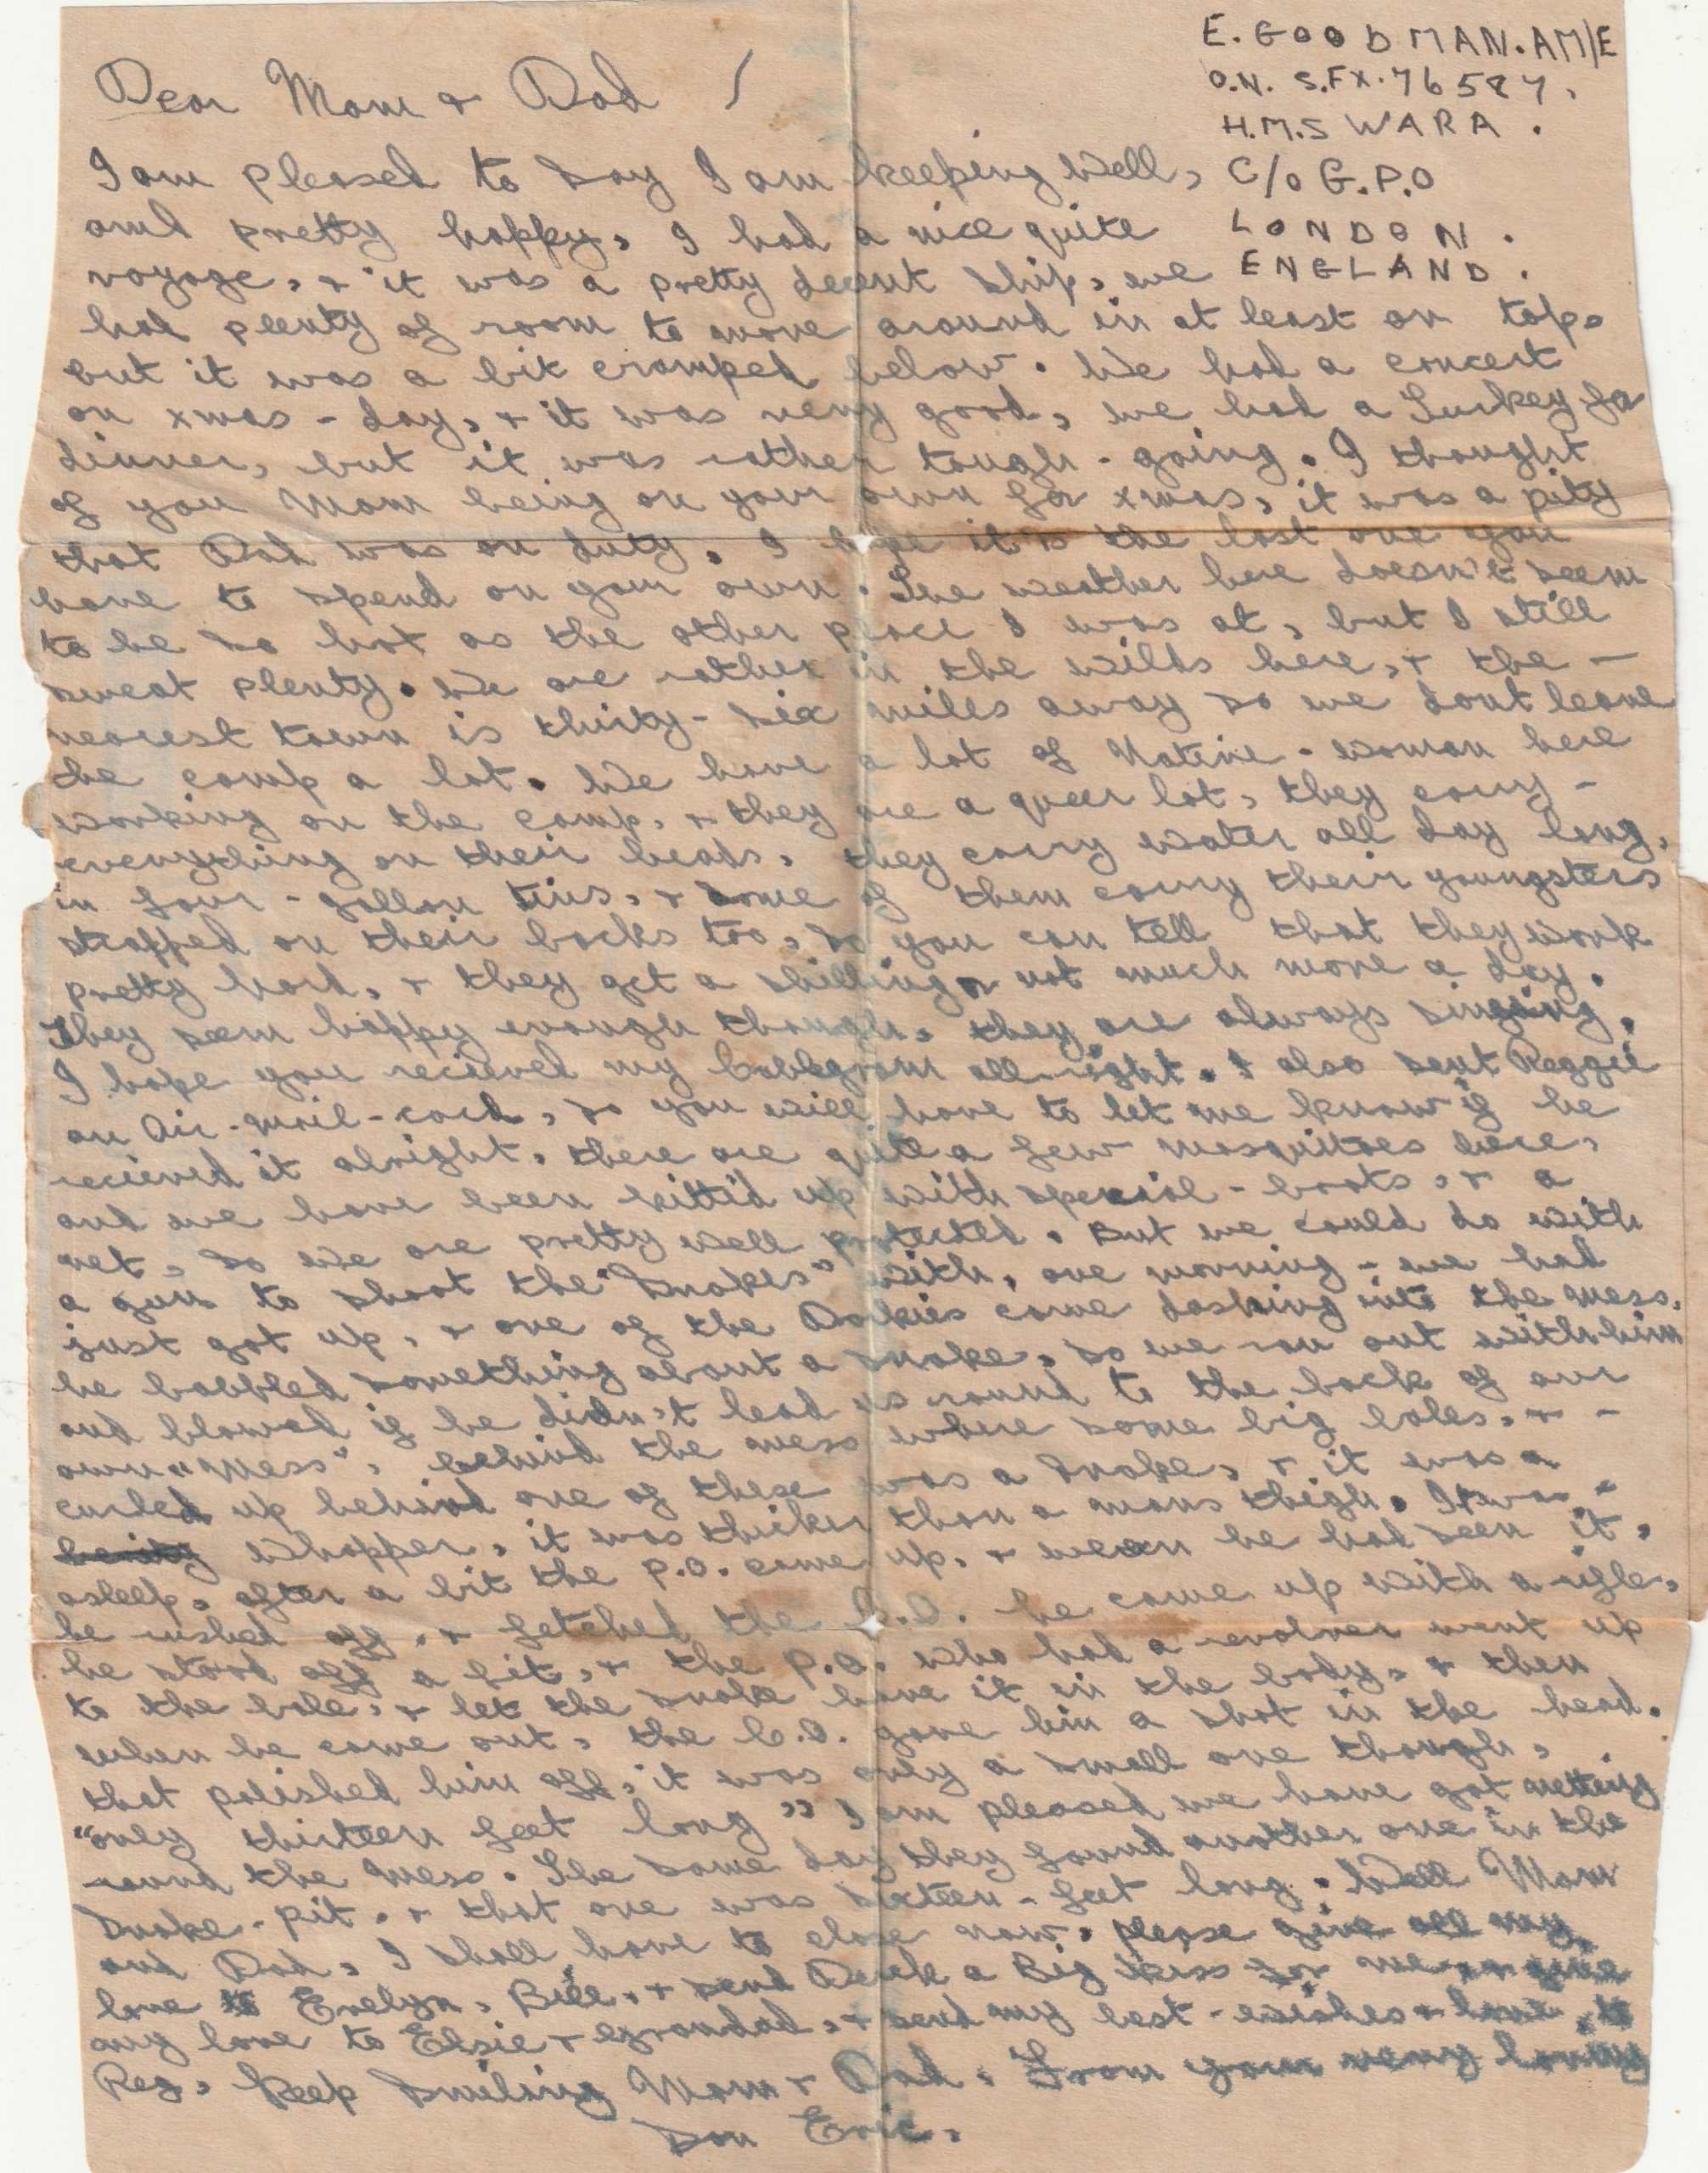 E. GOODMAN. AM/E
O.N. S.FX. 76587.
H.M.S WARA.
C/o G.P.O
LONDON.
ENGLAND.
Dear Mom & Dad /
I am pleased to say I am keeping well,
and pretty happy, I had a nice quite
voyage, & it was a pretty decent ship, we
had plenty of room to move around in at least on top,
but it was a bit cramped below. We had a concert
on xmas - day, & it was very good, we had a Turkey for
dinner, but it was rather tough - going. I thought
of you Mom being on your own for xmas, it was a pity
that Dad was on duty. I hope it is the last one you
have to spend on your own. The weather here doesn't seem
to be so hot as the other place I was at, but I still
sweat plenty. We are rather in the wilds here, & the -
nearest town is thirty - six miles away so we dont leave
the camp a lot. We have a lot of Native - woman here
working on the camp, & they are a queer lot, they carry -
everything on their heads, they carry water all day long,
in four - gallon tins, & some of them carry their youngsters
strapped on their backs too, so you can tell that they work
pretty hard, & they get a shilling or not much more a day.
They seem happy enough though, they are always singing.
I hope you recieved my Cablegram all-right. I also sent Reggie
an Air - mail - card, so you will have to let me know if he
recieved it alright. there are quite a few mosquitoes here,
and we have been kitted up with special - boots, & a
net, so we are pretty well protected. But we could do with
a gun to shoot the "Snakes" with, one morning - we had
just got up, & one of the Darkies came dashing into the mess,
he babbled something about a snake, so we ran out with him
and blowed if he didn't lead us round to the back of our
own "Mess", behind the mess where some big holes, & -
curled up behind one of these was a snake, & it was a
whopper, it was thicker than a mans thigh. It was -
asleep, after a bit the P.O. came up, & when he had seen it,
he rushed off, & fetched the C.O. he came up with a rifle,
he stood off a bit, & the P.O. who had a revolver went up
to the hole, & let the snake have it in the body, & then
when he came out, the C.O. gave him a shot in the head.
that polished him off, it was only a small one though,
"only thirteen feet long" I am pleased we have got netting
round the mess. The same day they found another one in the
snake - pit, & that one was sixteen - feet long. Well Mom
and Dad, I shall have to close now, please give all my
love to Evelyn, Bill, & send Derek a Big kiss for me & give
my love to Elsie & Grandad, & send my best - wishes & love to
Reg, keep smiling Mom & Dad. From your very loving
Son Eric.